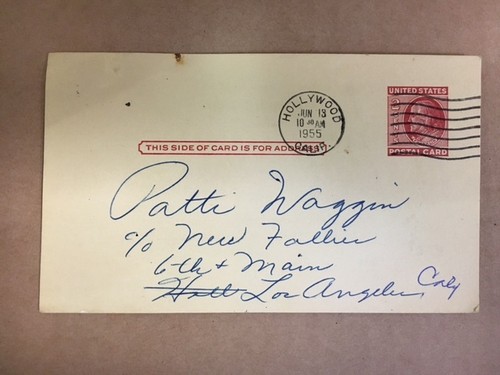 UNITED STATES
POSTAL CARD
HOLLYWOOD
JUN 13
10 30 AM
1955
CALIF.
THIS SIDE OF CARD IS FOR ADDRESS
Patti Waggin
c/o New Follies
6th + Main
Holl Los Angeles, Calif